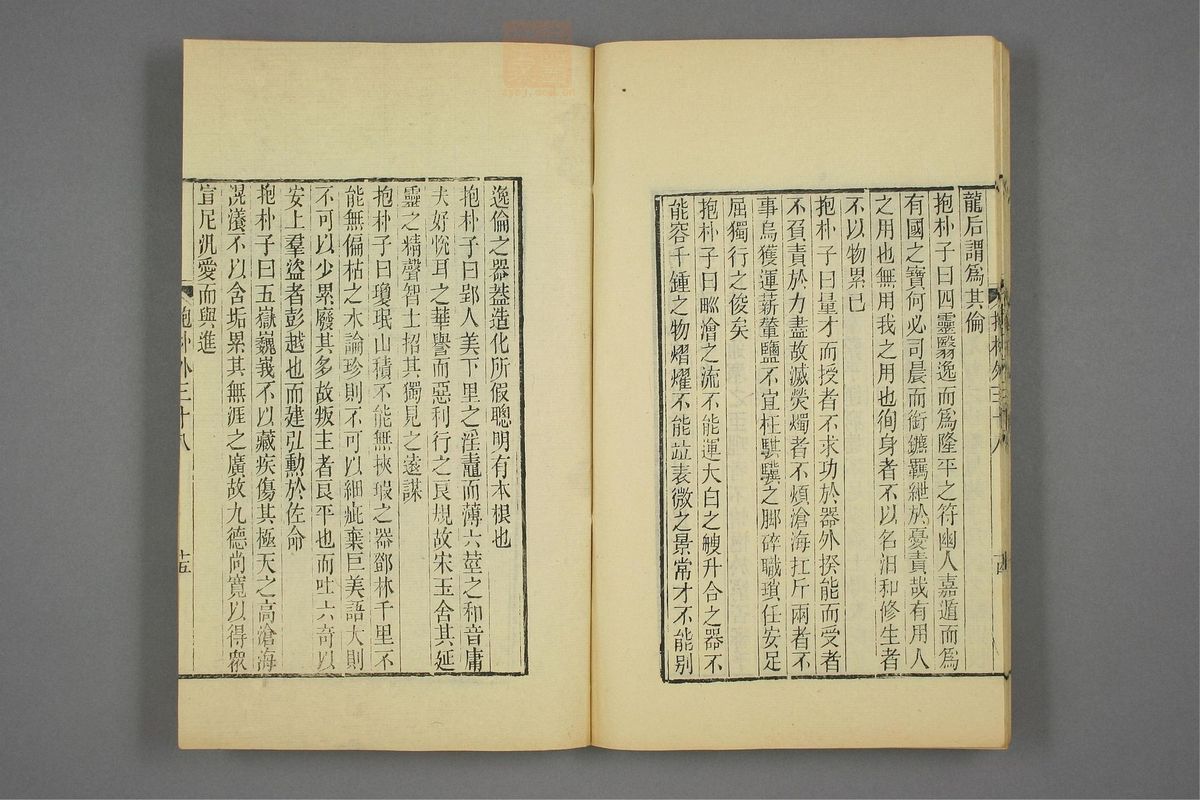 龍后謂爲其倫
抱朴子曰四靈翳逸而爲隆平之符幽人嘉遁而爲
有國之寶何必司晨而銜鑣羈紲於憂責哉有用人
之用也無用我之用也徇身者不以名汨和修生者
不以物累己
抱朴子曰量才而授者不求功於器外揆能而受者
不負責於力盡故滅熒燭者不煩滄海扛斤兩者不
事烏獲運薪輦鹽不宜枉騏驥之脚碎職瑣任安足
屈獨行之俊矣
抱朴子曰畎澮之流不能運大白之艘升合之器不
能容千鍾之物熠燿不能竝表微之景常才不能別
逸倫之器蓋造化所假聰明有本根也
抱朴子曰郢人美下里之淫䵷而薄六莖之和音庸
夫好悅耳之華譽而惡利行之良規故宋玉舍其延
靈之精聲智士招其獨見之遠謀
抱朴子曰瓊珉山積不能無挾瑕之器鄧林千里不
能無偏枯之木論珍則不可以細疵棄巨美語大則
不可以少累廢其多故叛主者良平也而吐六奇以
安上羣盜者彭越也而建弘勳於佐命
抱朴子曰五嶽巍峩不以藏疾傷其極天之高滄海
滉瀁不以含垢累其無涯之廣故九德尚寬以得衆
宣尼汎愛而與進
抱朴外三十八
十五